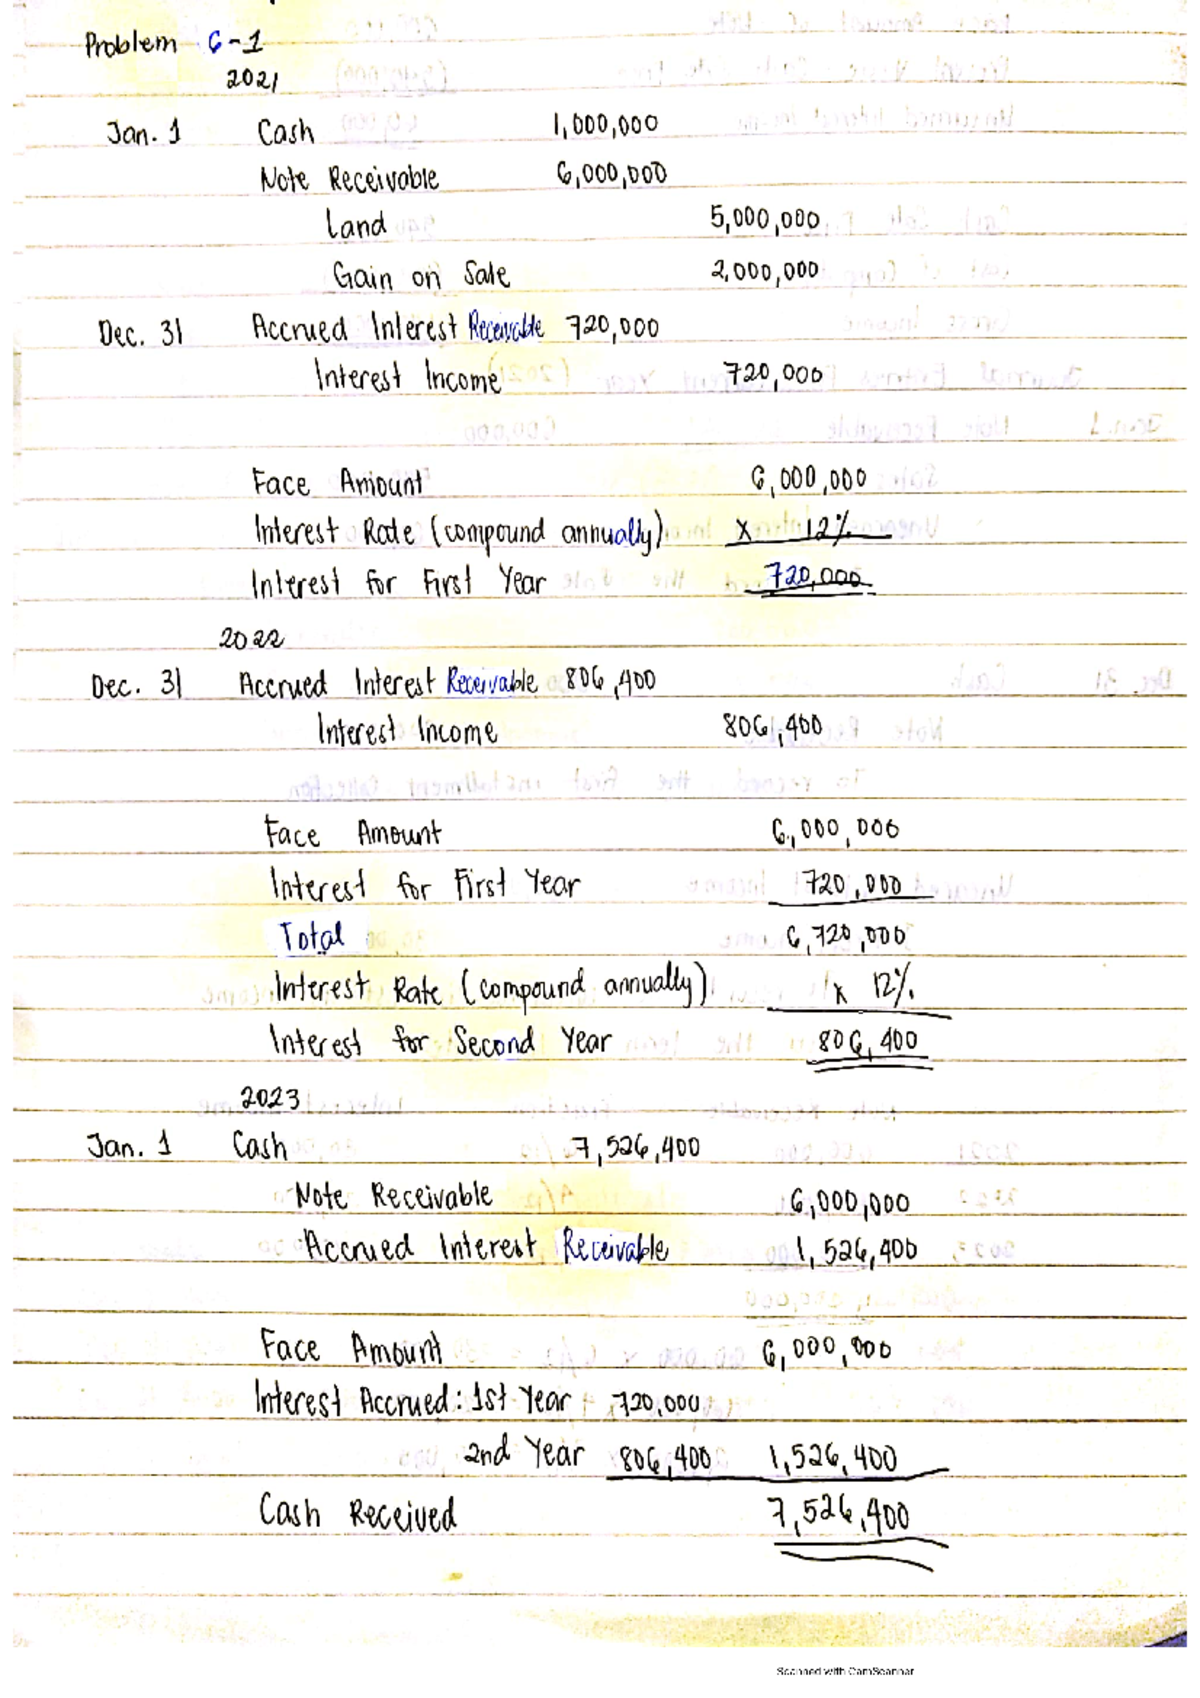 Problem 6-1
2021
Jan. 1 Cash 1,000,000
Note Receivable 6,000,000
Land 5,000,000
Gain on Sale 2,000,000
Dec. 31 Accrued Interest Receivable 720,000
Interest Income 720,000
Face Amount 6,000,000
Interest Rate (compound annually) x 12%
Interest for First Year 720,000
2022
Dec. 31 Accrued Interest Receivable 806,400
Interest Income 806,400
Face Amount 6,000,000
Interest for First Year 720,000
Total 6,720,000
Interest Rate (compound annually) x 12%
Interest for Second Year 806,400
2023
Jan. 1 Cash 7,526,400
Note Receivable 6,000,000
Accrued Interest Receivable 1,526,400
Face Amount 6,000,000
Interest Accrued: 1st Year 720,000
2nd Year 806,400 1,526,400
Cash Received 7,526,400
Scanned with CamScanner